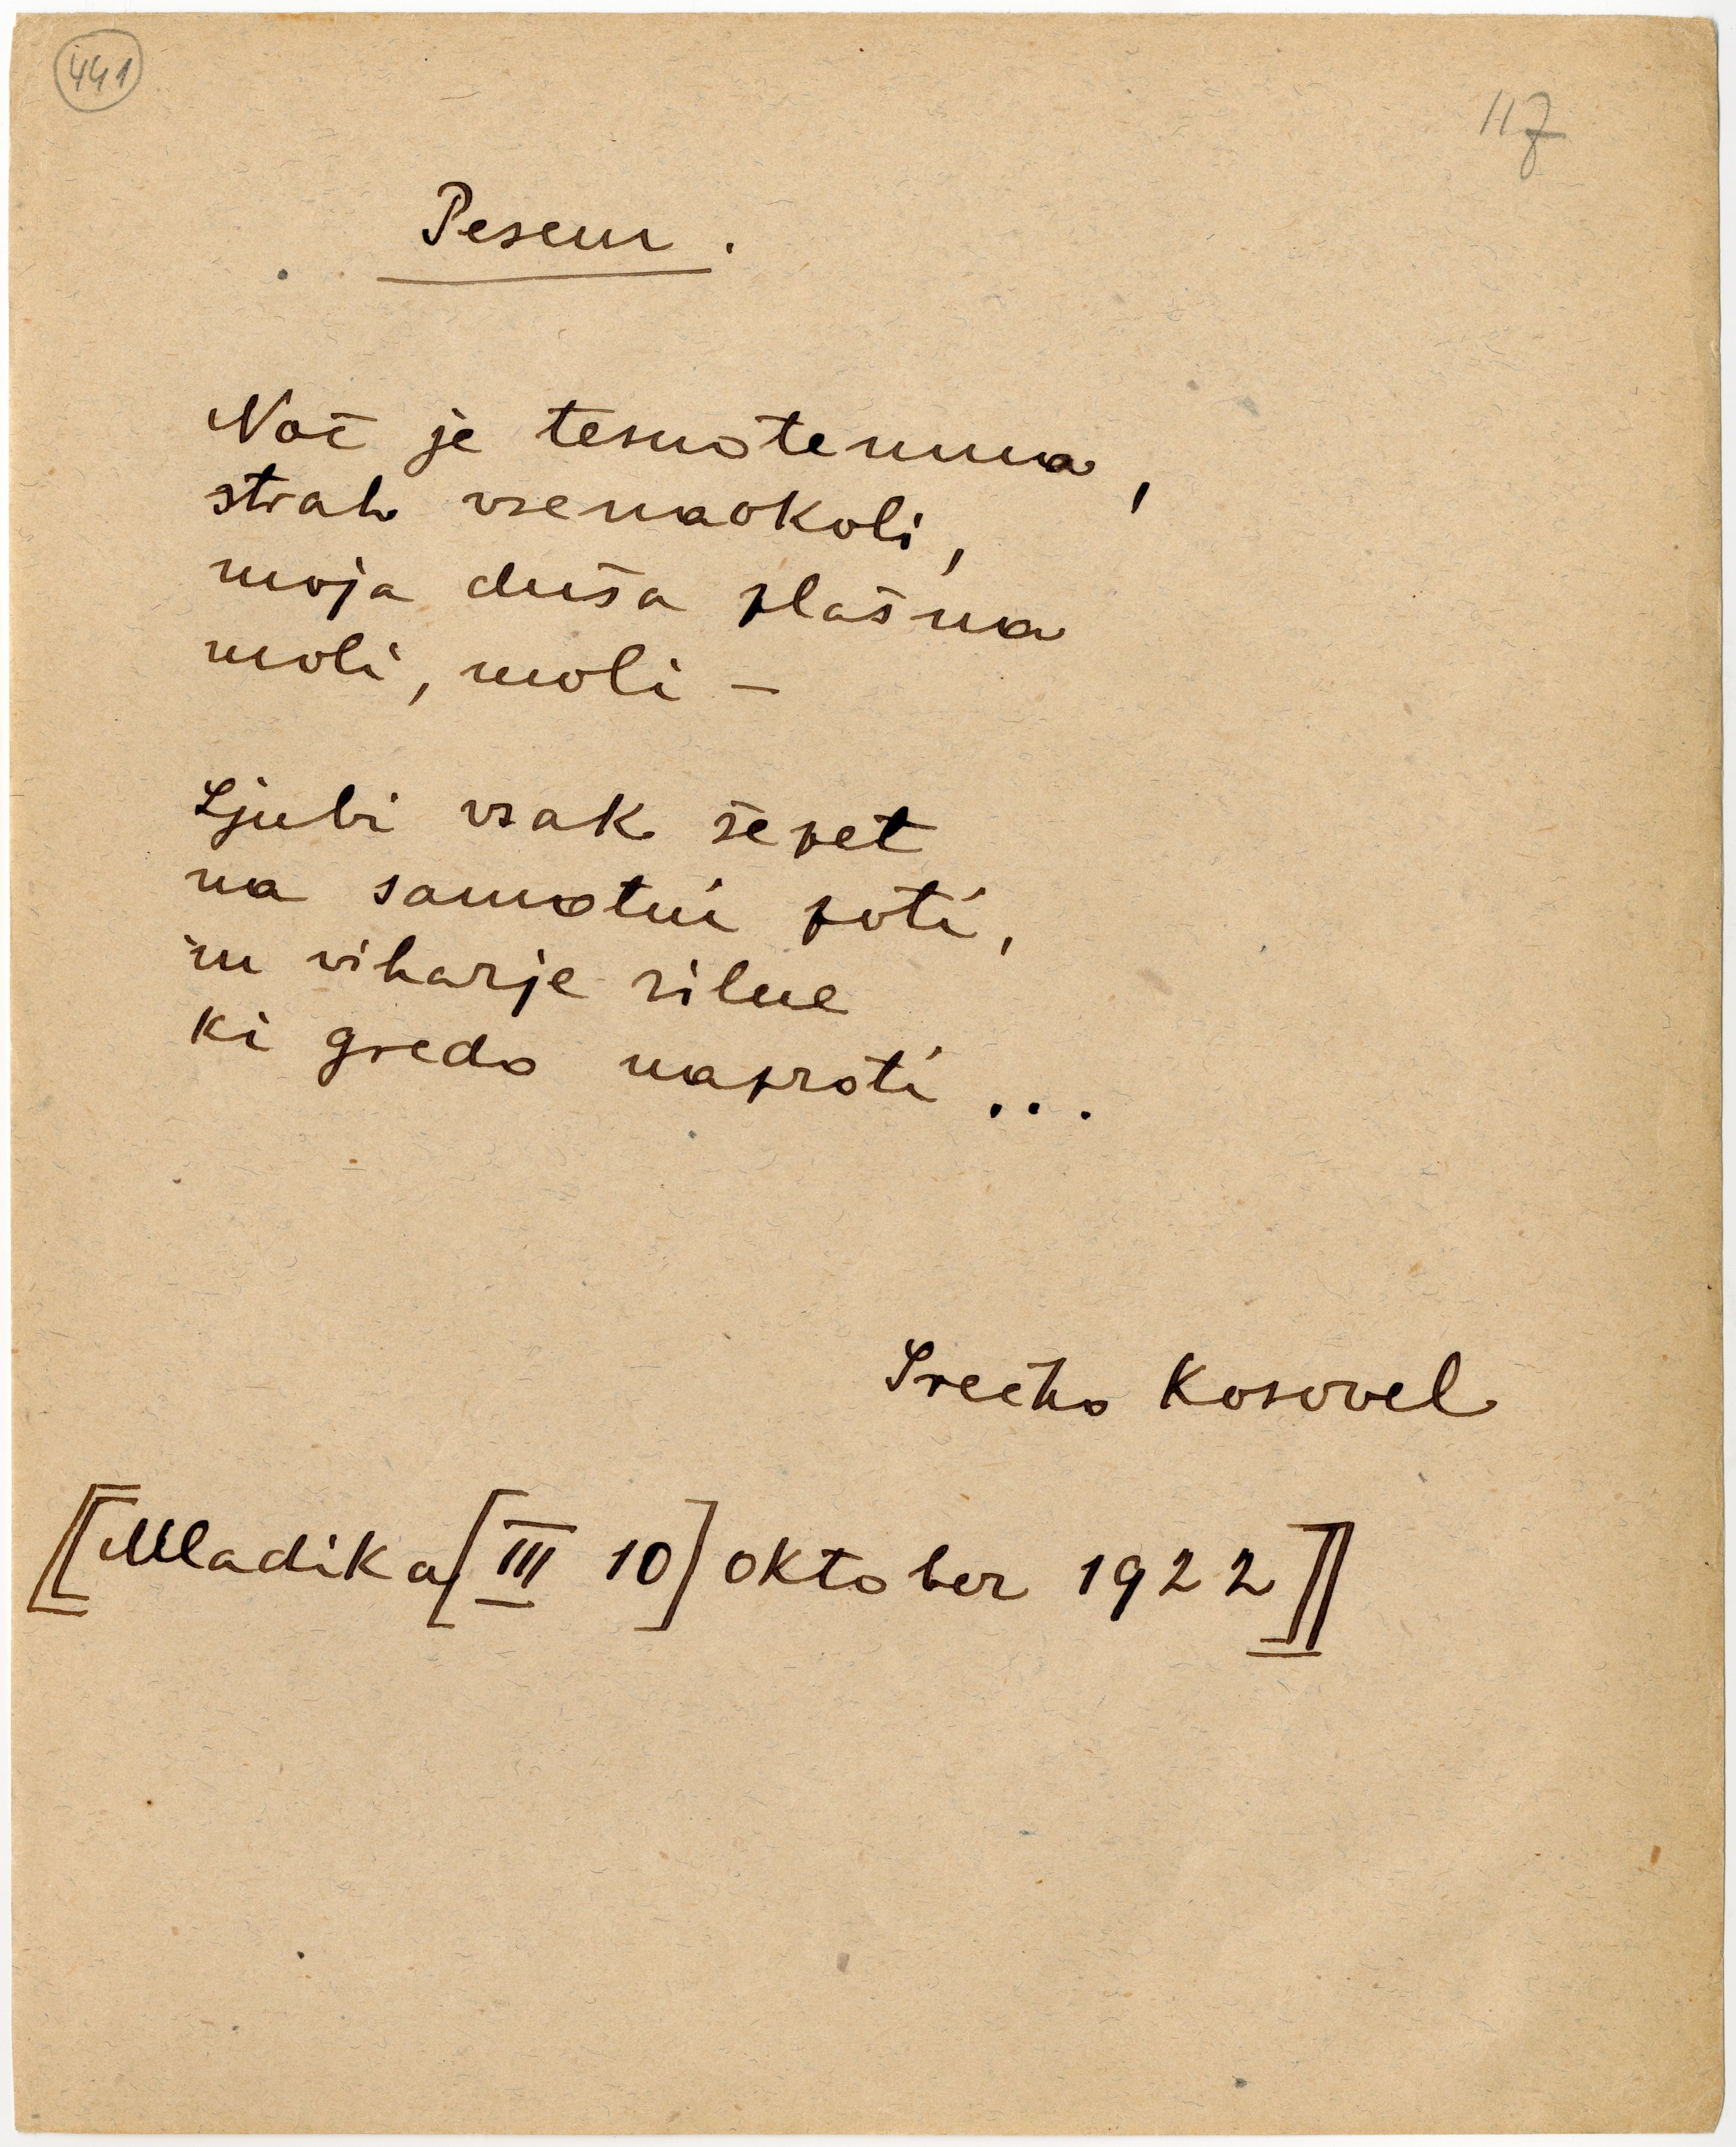 441
117
Pesem.
Noč je tesnotemna,
strah vsenaokoli,
moja duša plašna
moli, moli –
Ljubi vsak šepet
na samotni poti,
in viharje silne
ki gredo naproti...
Srečko Kosovel
[[Mladika [III 10] oktober 1922]]